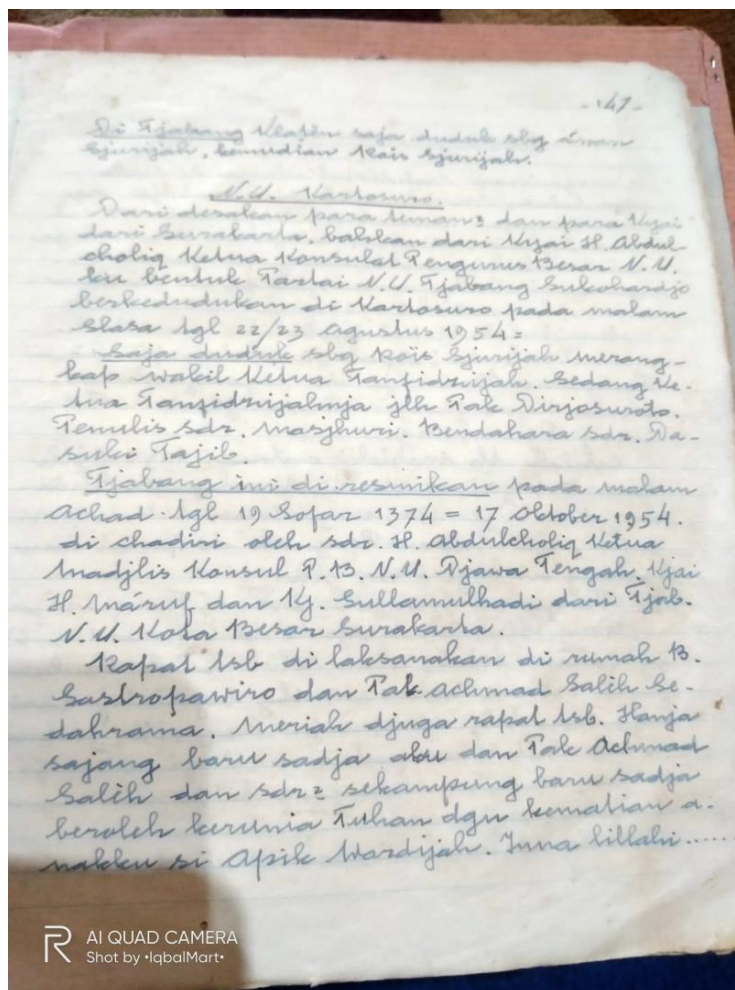 - 47 -
Di Tjabang Klatèn saja duduk sbg
Sjurijah, kemudian Rois Sjurijah.
N.U. Kartosuro.
Dari desakan para teman2 dan para Kyai
dari Surakarta, bahkan dari Kyai H. Abdul-
choliq Ketua Konsulat Pengurus Besar N.U.
ku bentuk Partai N.U. Tjabang Sukohardjo
berkedudukan di Kartosuro pada malam
Slasa tgl 22/23 Agustus 1954 =
Saja duduk sbg Rois Sjurijah merang-
kap wakil Ketua Tanfidzijah. Sedang Ke-
tua Tanfidzijahnja jlh Pak Dirjosuroto.
Penulis sdr. Masjhuri. Bendahara sdr. Da-
suki Tajib.
Tjabang ini di resmikan pada malam
Achad tgl 19 Sofar 1374 = 17 Oktober 1954.
di chadiri oleh sdr. H. Abdulcholiq Ketua
Madjlis Konsul P.B. N.U. Djawa Tengah, Kjai
H. Má'ruf dan Kj. Sullamulhadi dari Tjab.
N.U. Kota Besar Surakarta.
Rapat tsb di laksanakan di rumah B.
Sastropawiro dan Pak Achmad Salih Se-
dahrama. Meriah djuga rapat tsb. Hanja
sajang baru sadja aku dan Pak Achmad
Salih dan sdr2 sekampung baru sadja
beroleh kerunia Tuhan dgn kematian a-
nakku si Apik Wardijah. Inna lillahi.....
AI QUAD CAMERA
Shot by •IqbalMart•